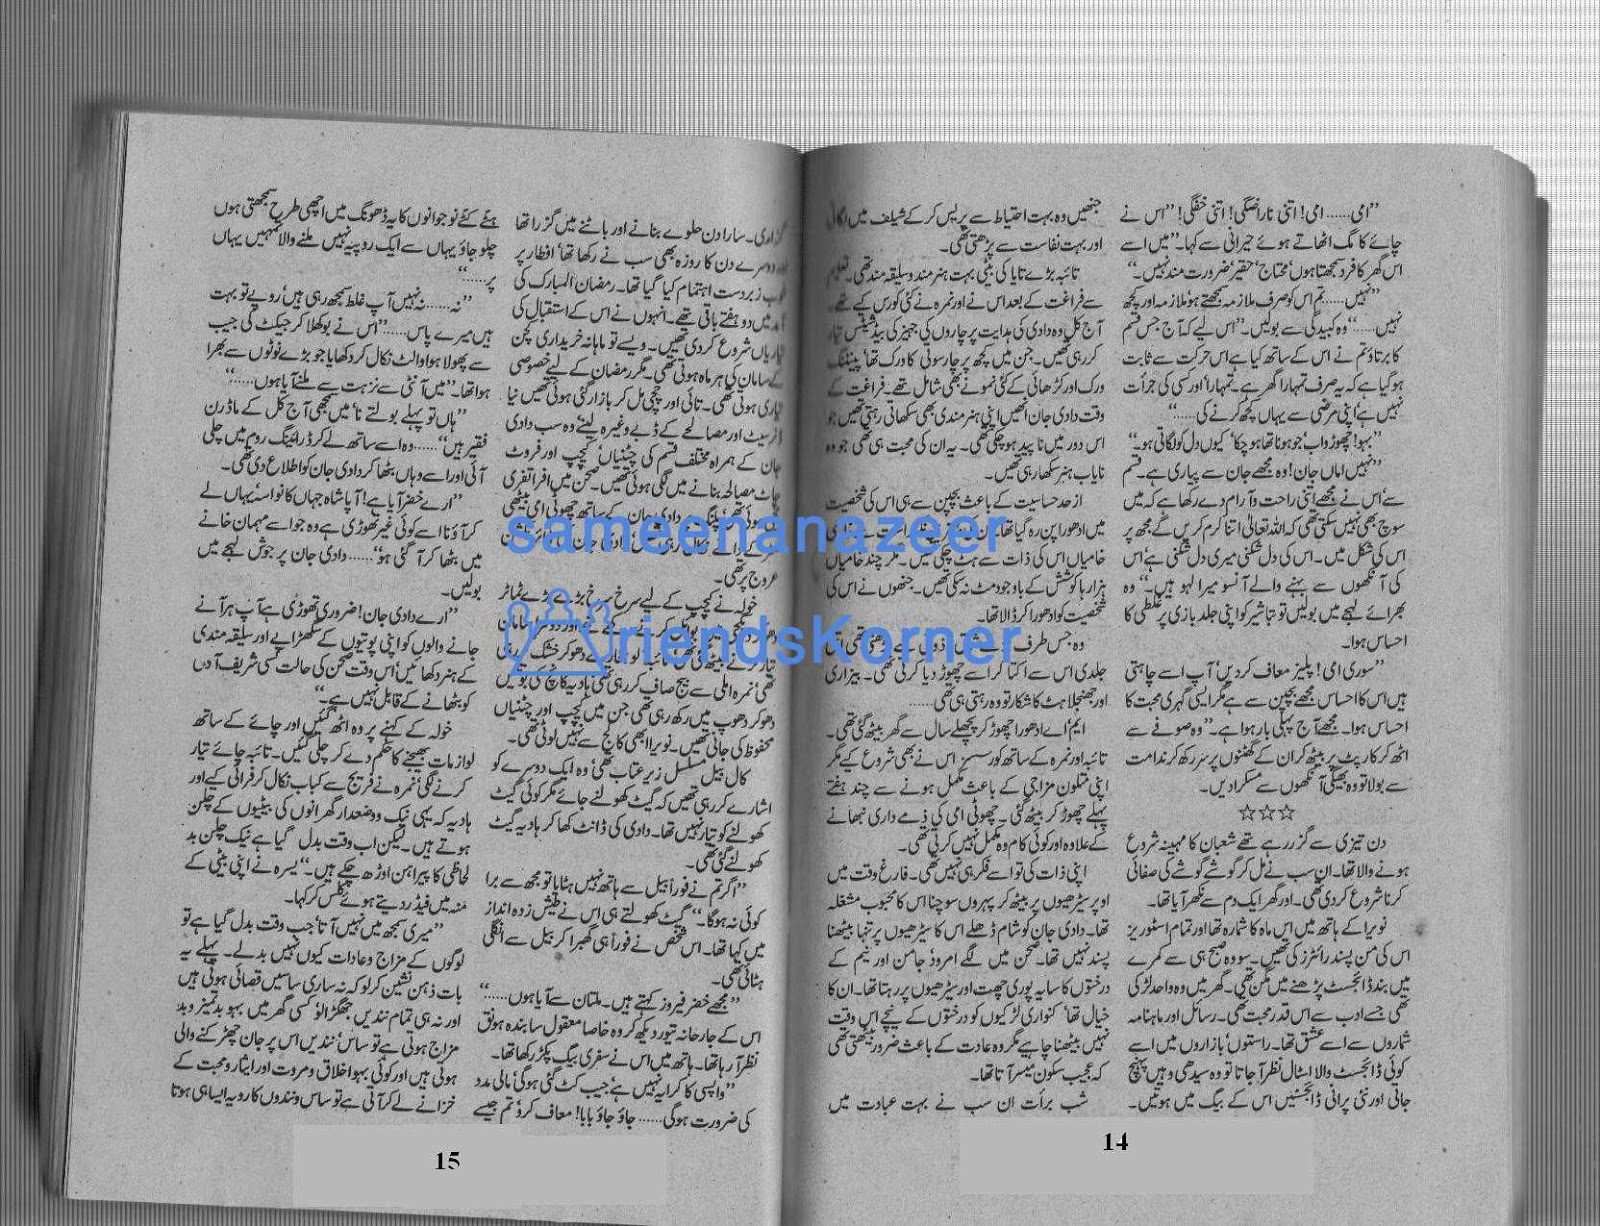 ”امی...... امی! اتنی ناراضگی! اتنی خفگی!“ اس نے
چائے کا مگ اٹھاتے ہوئے حیرانی سے کہا۔ ”میں اسے
اس گھر کا فرد سمجھتا ہوں‘ محتاج‘ حقیر‘ ضرورت مند نہیں۔“
”نہیں..... تم اس کو صرف ملازمہ سمجھتے ہو‘ ملازمہ اور کچھ
نہیں.....“ وہ کبیدگی سے بولیں۔ ”اس لیے کہ آج جس قسم
کا برتاؤ تم نے اس کے ساتھ کیا ہے اس حرکت سے ثابت
ہوگیا ہے کہ یہ صرف تمہارا گھر ہے۔ تمہارا‘ اور کسی کی جرأت
نہیں ہے اپنی مرضی سے یہاں کچھ کرنے کی.....“
”بہو! چھوڑو اب‘ جو ہونا تھا ہوچکا‘ کیوں دل کو لگاتی ہو۔“
”نہیں اماں جان! وہ مجھے جان سے پیاری ہے۔ قسم
سے‘ اس نے مجھے اتنی راحت و آرام دے رکھا ہے کہ میں
سوچ بھی نہیں سکتی تھی کہ اللہ تعالیٰ اتنا کرم کریں گے‘ مجھ پر
اس کی شکل میں۔ اس کی دل شکنی میری دل شکنی ہے‘ اس
کی آنکھوں سے بہنے والے آنسو میرا لہو ہیں۔“ وہ
بھرائے لہجے میں بولیں تو تباشیر کو اپنی جلد بازی پر غلطی کا
احساس ہوا۔
”سوری امی! پلیز معاف کردیں‘ آپ اسے چاہتی
ہیں اس کا احساس مجھے بچپن سے ہے مگر ایسی گہری محبت کا
احساس ہوا۔ مجھے آج پہلی بار ہوا ہے۔“ وہ صوفے سے
اٹھ کر کارپٹ پر بیٹھ کر ان کے گھٹنوں پر سر رکھ کر ندامت
سے بولا تو وہ بھیگی آنکھوں سے مسکرادیں۔
☆☆☆
دن تیزی سے گزر رہے تھے شعبان کا مہینہ شروع
ہونے والا تھا۔ ان سب نے مل کر گوشے گوشے کی صفائی
کرنا شروع کردی تھی۔ اور گھر ایک دم سے نکھر آیا تھا۔
نویرا کے ہاتھ میں اس ماہ کا شمارہ تھا اور تمام اسٹوریز
اس کی من پسند رائٹرز کی تھیں۔ سو وہ صبح ہی سے کمرے
میں بند ڈائجسٹ پڑھنے میں مگن تھی۔ گھر میں وہ واحد لڑکی
تھی جسے ادب سے اس قدر محبت تھی۔ رسائل اور ماہنامہ
شماروں سے اسے عشق تھا۔ راستوں‘ بازاروں میں اسے
کوئی ڈائجسٹ والا اسٹال نظر آجاتا تو وہ سیدھی وہیں پہنچ
جاتی اور نئی پرانی ڈائجسٹیں اس کے بیگ میں ہوتیں۔
جنھیں وہ بہت احتیاط سے پریس کرکے شیلف میں لگاتی
اور بہت نفاست سے پڑھتی تھی۔
تائبہ بڑے تایا کی بیٹی بہت ہنر مند و سلیقہ مند تھی۔ تعلیم
سے فراغت کے بعد اس نے اور نمرہ نے کئی کورس کیے تھے۔
آج کل وہ دادی کی ہدایت پر چاروں کی جہیز کی بیڈ شیٹس تیار
کررہی تھیں۔ جن میں کچھ پر چار سوتی کا ورک تھا‘ پینٹنگ
ورک اور کڑھائی کے کئی نمونے بھی شامل تھے۔ فراغت کے
وقت دادی جان انھیں اپنی ہنرمندی بھی سکھاتی رہتی تھیں جو
اس دور میں ناپید ہوچکی تھی۔ یہ ان کی محبت ہی تھی جو وہ
نایاب ہنر سکھا رہی تھیں۔
ازحد حساسیت کے باعث بچپن سے ہی اس کی شخصیت
میں ادھورا پن رہ گیا تھا۔
خامیاں اس کی ذات سے ہٹ چکی تھیں۔ مگر چند خامیاں
ہزارہا کوشش کے باوجود مٹ نہ سکی تھیں۔ جنھوں نے اس کی
شخصیت کو ادھورا کر ڈالا تھا۔
وہ جس طرف
جلدی اس سے اکتا کر اسے چھوڑ دیا کرتی تھی۔ بیزاری
اور جھنجلاہٹ کا شکار تو وہ رہتی ہی تھی.......
ایم اے ادھورا چھوڑ کر پچھلے سال سے گھر بیٹھ گئی تھی۔
تائبہ اور نمرہ کے ساتھ کورسسز اس نے بھی شروع کیے مگر
اپنی متلون مزاجی کے باعث مکمل ہونے سے چند ہفتے
پہلے چھوڑ کر بیٹھ گئی۔ چھوٹی امی کی ذمے داری نبھانے
کے علاوہ اور کوئی کام وہ مکمل نہیں کرتی تھی۔
اپنی ذات کی تو اسے فکر ہی نہیں تھی۔ فارغ وقت میں
اوپر سیڑھیوں پر بیٹھ کر پہروں سوچنا اس کا محبوب مشغلہ
تھا۔ دادی جان کو شام ڈھلے اس کا سیڑھیوں پر تنہا بیٹھنا
پسند نہیں تھا۔ صحن میں لگے امرود‘ جامن اور نیم کے
درختوں کا سایہ پوری چھت اور سیڑھیوں پر رہتا تھا۔ ان کا
خیال تھا‘ کنواری لڑکیوں کو درختوں کے نیچے اس وقت
نہیں بیٹھنا چاہیے مگر وہ عادت کے باعث ضرور بیٹھتی تھی
کہ عجیب سکون میسر آتا تھا۔
شب برأت ان سب نے بہت عبادت میں
14
گزاری۔ سارا دن حلوے بنانے اور بانٹنے میں گزرا تھا
دوسرے دن کا روزہ بھی سب نے رکھا تھا‘ افطار پر
خوب زبردست اہتمام کیا گیا تھا۔ رمضان المبارک کی
آمد میں دو ہفتے باقی تھے۔ انہوں نے اس کے استقبال کی
تیاریاں شروع کردی تھیں۔ ویسے تو ماہانہ خریداری کچن
کے سامان کی ہر ماہ ہوتی تھی۔ مگر رمضان کے لیے خصوصی
تیاری ہوتی تھی۔ تائی اور چچی مل کر بازار گئی ہوئی تھیں نیا
ڈنر سیٹ اور مصالحے کے ڈبے وغیرہ لینے‘ وہ سب دادی
جان کے ہمراہ مختلف قسم کی چٹنیاں‘ کیچپ اور فروٹ
چاٹ مصالحہ بنانے میں لگی ہوئی تھیں۔ صحن میں افراتفری
دادی جان کے ساتھ چھوٹی امی بیٹھی
عروج پر تھی۔
خولہ نے کیچپ کے لیے سرخ سرخ بڑے بڑے ٹماٹر
تھی‘ نمرہ املی سے بیج صاف کررہی تھی‘ ہادیہ کانچ کی بوتلیں
دھو کر دھوپ میں رکھ رہی تھی جن میں کیچپ اور چٹنیاں
محفوظ کی جانی تھیں۔ نویرا ابھی کالج سے نہیں لوٹی تھی۔
کال بیل مسلسل زیر عتاب تھی‘ وہ ایک دوسرے کو
اشارے کررہی تھیں کہ گیٹ کھولنے جائے مگر کوئی گیٹ
کھولنے کو تیار نہیں تھا۔ دادی کی ڈانٹ کھا کر ہادیہ گیٹ
کھولنے گئی تھی۔
”اگر تم نے فوراً بیل سے ہاتھ نہیں ہٹایا تو مجھ سے برا
کوئی نہ ہوگا۔“ گیٹ کھولتے ہی اس نے طیش زدہ انداز
میں کہا تھا۔ اس شخص نے فوراً ہی گھبرا کر بیل سے انگلی
ہٹائی تھی۔
”مجھے خضر فیروز کہتے ہیں۔ ملتان سے آیا ہوں.....“
اس کے جارحانہ تیور دیکھ کر وہ خاصا معقول سا بندہ ہونق
نظر آرہا تھا۔ ہاتھ میں اس نے سفری بیگ پکڑ رکھا تھا۔
”واپسی کا کرایہ نہیں ہے‘ جیب کٹ گئی ہوگی‘ مالی مدد
کی ضرورت ہوگی...... جاؤ جاؤ بابا! معاف کرو‘ تم جیسے
ہٹے کٹے نوجوانوں کا یہ ڈھونگ میں اچھی طرح سمجھتی ہوں
چلو جاؤ یہاں سے ایک روپیہ نہیں ملنے والا تمہیں یہاں
پر.....“
”نہ..... نہ نہیں آپ غلط سمجھ رہی ہیں‘ روپے تو بہت
ہیں میرے پاس.....“ اس نے بوکھلا کر جیکٹ کی جیب
سے پھولا ہوا والٹ نکال کر دکھایا جو بڑے نوٹوں سے بھرا
ہوا تھا۔ ”میں آنٹی سے نزہت سے ملنے آیا ہوں.....“
”ہاں تو پہلے بولتے نا‘ میں سمجھی آج کل کے ماڈرن
فقیر ہیں“..... وہ اسے ساتھ لے کر ڈرائینگ روم میں چلی
آئی اور اسے وہاں بٹھا کر دادی جان کو اطلاع دی تھی۔
”ارے خضر آیا ہے! آپا شاہ جہاں کا نواسہ‘ یہاں لے
کر آؤ نا اسے کوئی غیر تھوڑی ہے وہ جو اسے مہمان خانے
میں بٹھا کر آ گئی ہو‘..... دادی جان پر جوش لہجے میں
بولیں۔
”ارے دادی جان! ضروری تھوڑی ہے آپ ہر آنے
جانے والوں کو اپنی پوتیوں کے سگھڑاپے اور سلیقہ مندی
کے ہنر دکھائیں‘ اس وقت صحن کی حالت کسی شریف آدمی
کو بٹھانے کے قابل نہیں ہے۔“
خولہ کے کہنے پر وہ اٹھ گئیں اور چائے کے ساتھ
لوازمات بھیجنے کا حکم دے کر چلی گئیں۔ تائبہ چائے تیار
کرنے لگی‘ نمرہ نے فریج سے کباب نکال کر فرائی کیے اور
ہادیہ کہ یہی نیک و وضعدار گھرانوں کی بیٹیوں کے چلن
ہوتے ہیں۔ لیکن اب وقت بدل گیا ہے نیک چلن بد
لحاظی کا پیراہن اوڑھ چکے ہیں۔“ یسرہ نے اپنی بیٹی کے
منہ میں فیڈر دیتے ہوئے کہا۔
”میری سمجھ میں نہیں آتا‘ جب وقت بدل گیا ہے تو
لوگوں کے مزاج و عادات کیوں نہیں بدلے۔ پہلے یہ
بات ذہن نشین کرلو کہ نہ ساری ساسیں قصائی ہوتی ہیں
اور نہ ہی تمام نندیں جھگڑالو‘ کسی گھر میں بہو بدتمیز و بد
مزاج ہوتی ہے تو ساس‘ نندیں اس پر جان چھڑکنے والی
ہوتی ہیں اور کوئی بہو اخلاق و مروت اور ایثار و محبت کے
خزانے لے کر آتی ہے تو ساس و نندوں کا رویہ ایسا ہی ہوتا
15
sameenanazeer
riendsKorner